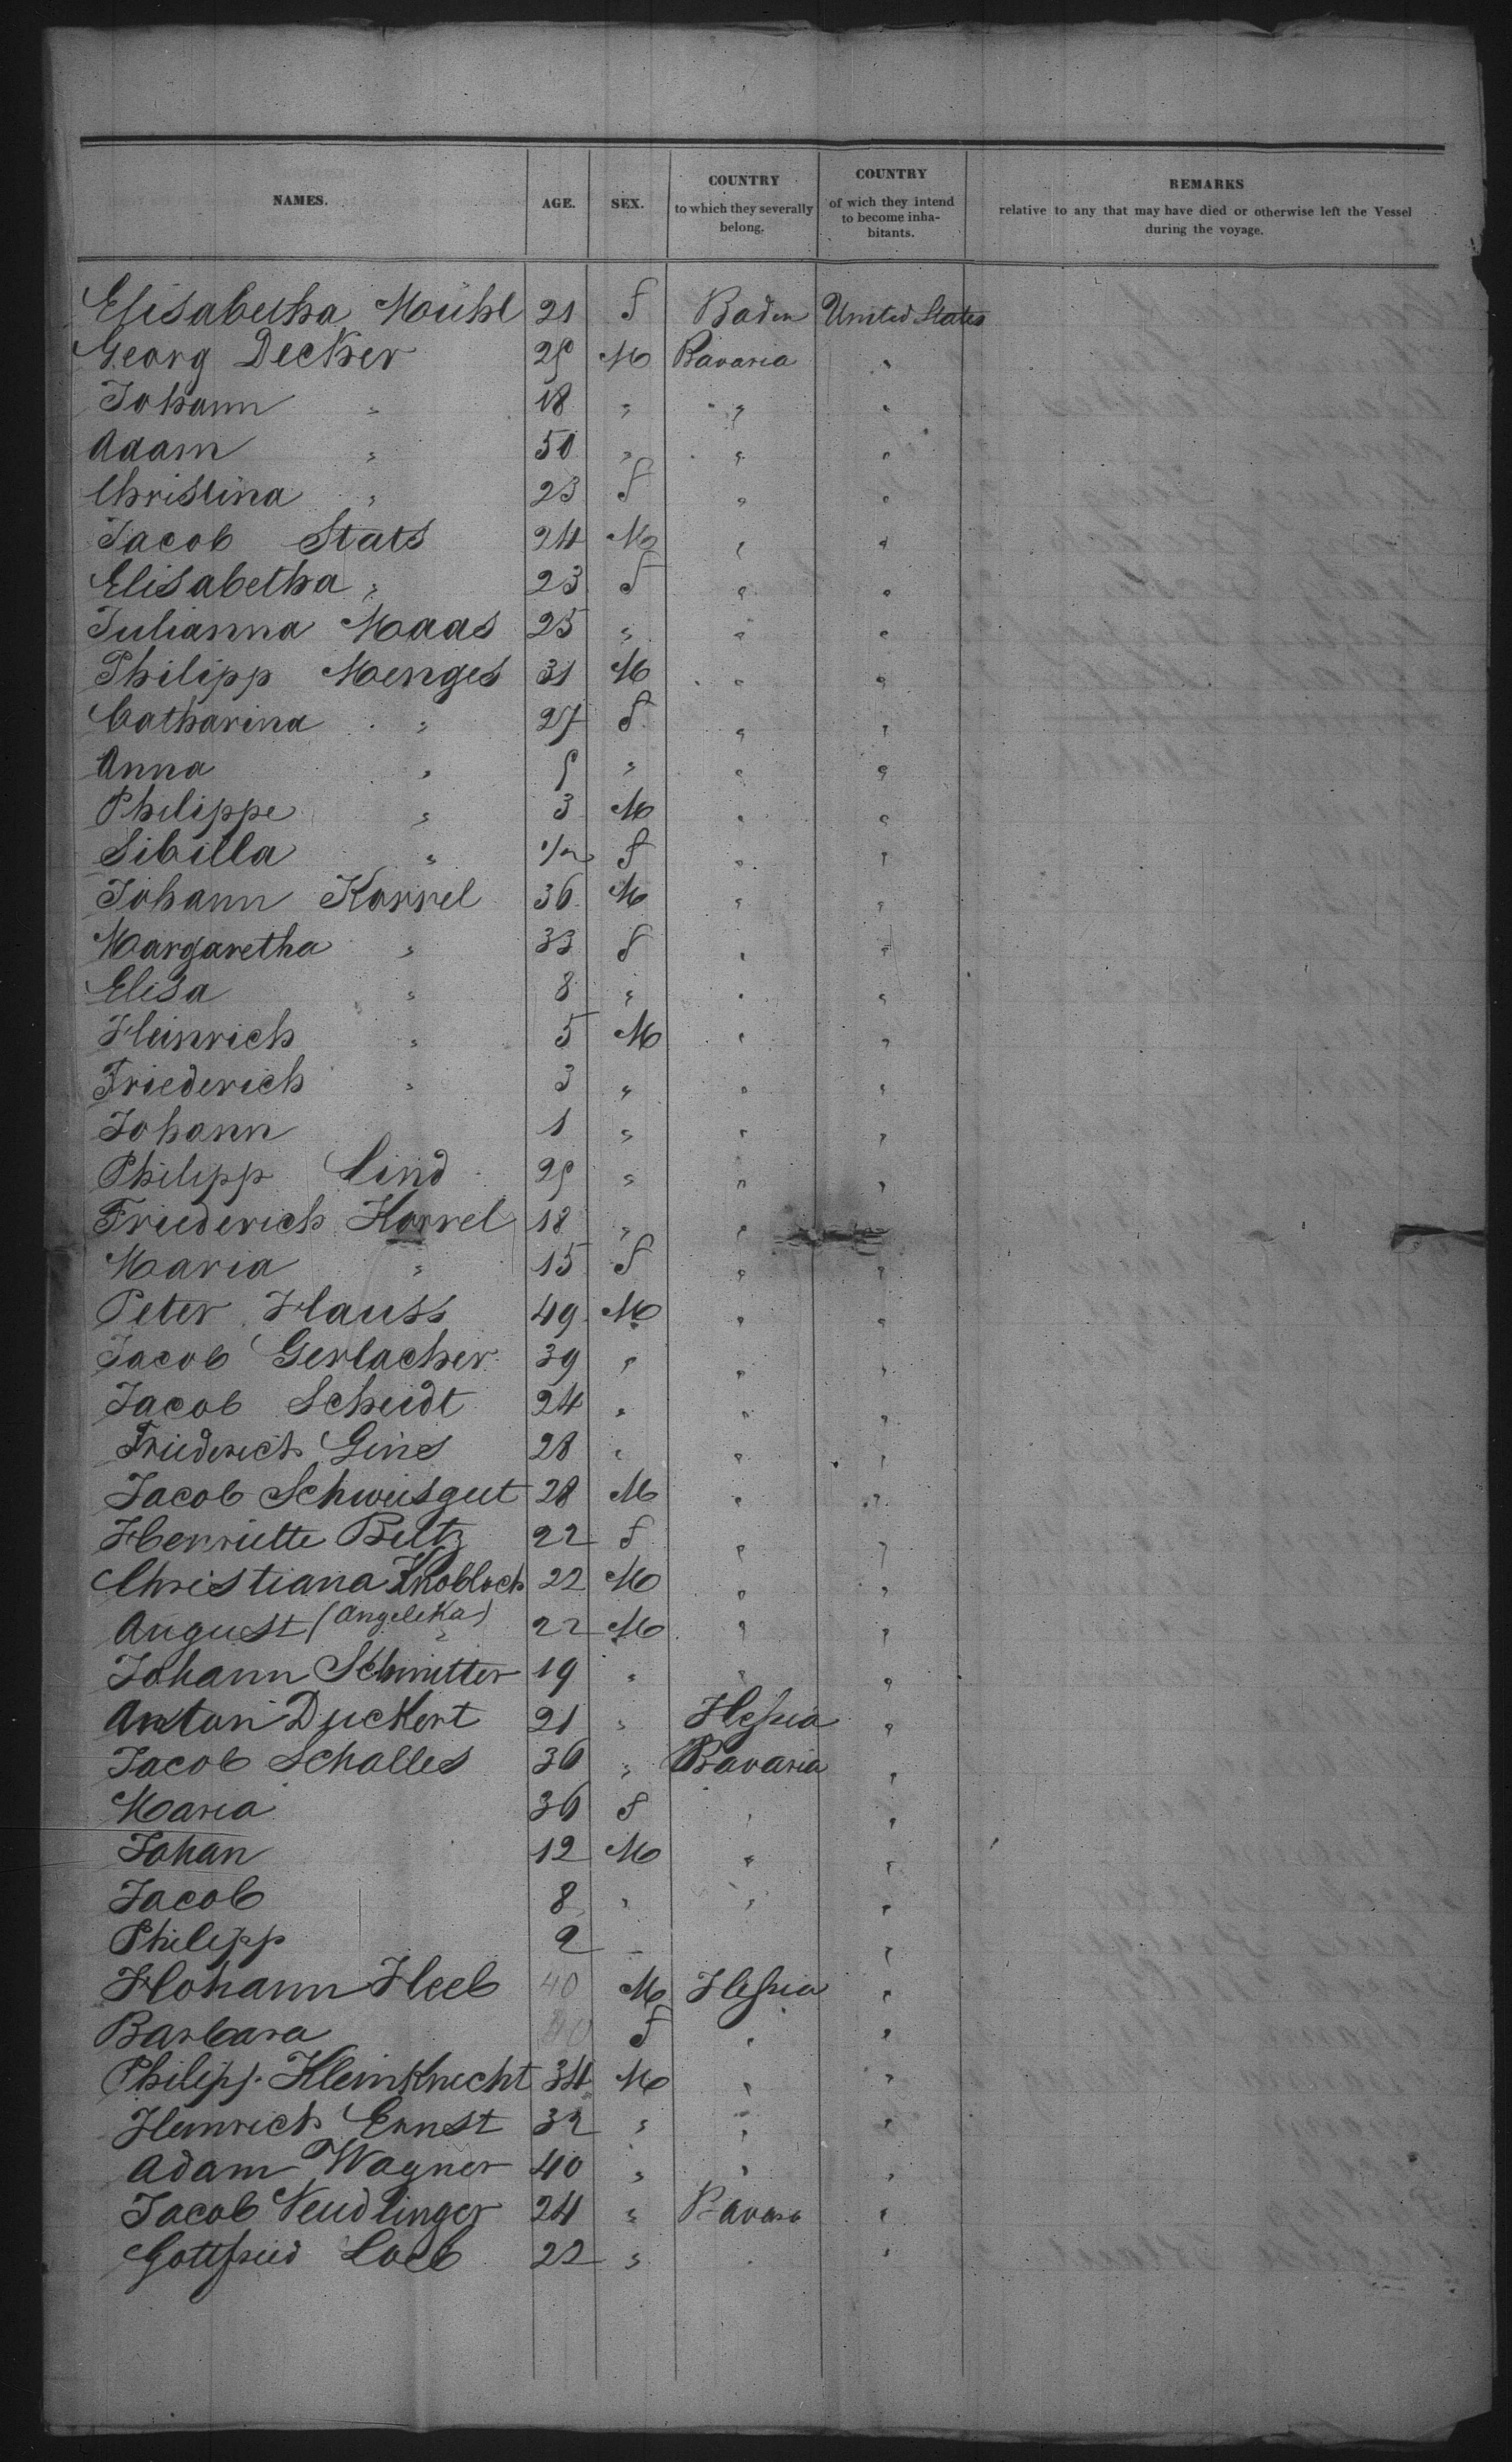 NAMES. AGE. SEX. COUNTRY to which they severally belong. COUNTRY of wich they intend to become inhabitants. REMARKS relative to any that may have died or otherwise left the Vessel during the voyage.
Elisabetha Mühl 21 f Baden United States
Georg Decker 25 M Bavaria "
Johann " 18 " " "
Adam " 50 " " "
Christina " 23 f " "
Jacob Stats 24 M " "
Elisabetha " 23 f " "
Julianna Maas 25 " " "
Philipp Menges 31 M " "
Catharina " 27 f " "
Anna " 5 " " "
Philippe " 3 M " "
Sibilla " 1/2 f " "
Johann Korrel 36 M " "
Margaretha " 33 f " "
Elisa " 8 " " "
Heinrich " 5 M " "
Friederich " 3 " " "
Johann 1 " " "
Philipp Lind 25 " " "
Friederich Korrel 18 " " "
Maria " 15 f " "
Peter Hauss 49 M " "
Jacob Gerlacher 39 " " "
Jacob Scheidt 24 " " "
Friederich Gins 28 " " "
Jacob Schweisgut 28 M " "
Henriette Beltz 22 f " "
Christiana Knobloch 22 M " "
August (Angelika) " 22 M " "
Johann Schmitter 19 " " "
Anton Duckert 21 " Hessia "
Jacob Schalles 36 " Bavaria "
Maria 36 f " "
Johan 12 M " "
Jacob 8 " " "
Philipp 2 "
Hohann Heeb 40 M Hessia "
Barbara 40 f " "
Philipp Kleinknecht 34 M " "
Heinrich Ernst 32 " " "
Adam Wagner 40 " " "
Jacob Neudlinger 24 " Bavaria "
Gottfried Loeb 22 " " "